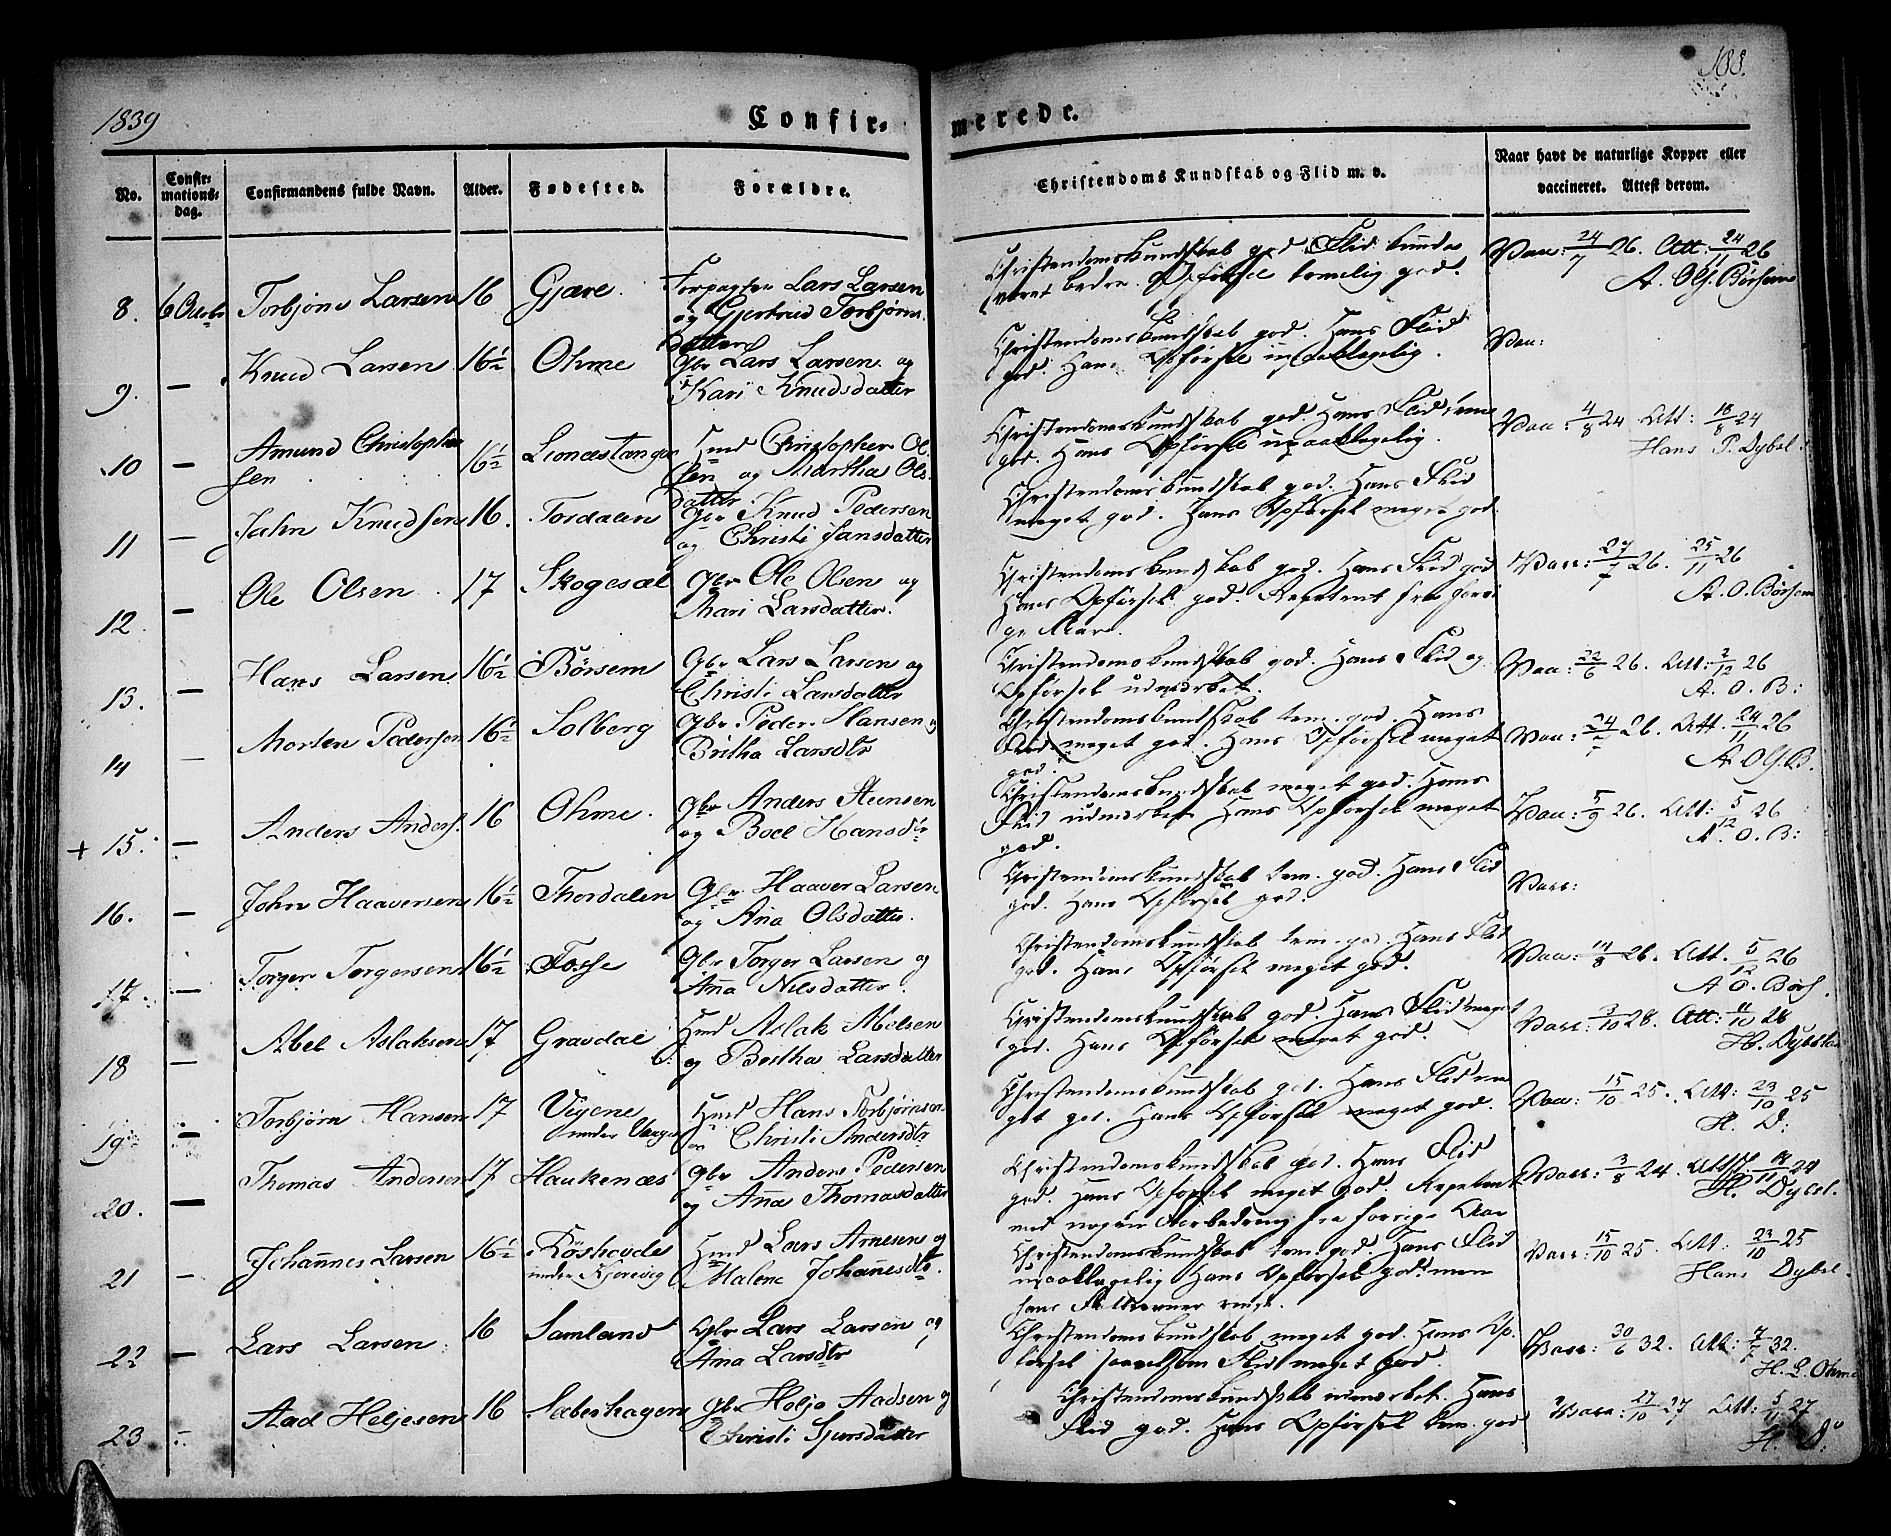 1839
Confir-
merede.
188.
No.
Confir-
mations-
dag.
Confirmandens fulde Navn.
Alder.
Fødested.
Forældre.
Christendoms Kundskab og Flid m. v.
Naar havt de naturlige Kopper eller
vaccineret. Attest derom.
8. 6 Octobr Torbjörn Larsen 16 Gjære. Forpagter Lars Larsen
og Gjertrud Torbjörns
datter
Christendomskundskab god. Flid kunde
været bedre. Opförsel temelig god.
Vacc: 24/7 26. Att: 24/11 26
A. OG. Börsem
9. — Knud Larsen 16½ Ohme Gbr Lars Larsen og
Kari Knudsdatter
Christendomskundskab god. Hans Flid
god. Hans Opförsel upaaklagelig.
Vacc:
10 — Amund Christopher
sen 16½ Leonestangen Hmd Christopher Ol-
sen og Martha Ols-
datter
Christendomskundskab god. Hans Flid
god. Hans Opförsel upaaklagelig.
Vacc: 4/8 24 Att: 18/8 24
Hans P. Dybsl:
11 — John Knudsen 16. Tordalen Gbr Knud Pedersen
og Christi Jansdatter
Christendomskundskab god. Hans Flid
meget god. Hans Opförsel meget god.
12. — Ole Olsen 17 Skogesæl Gbr Ole Olsen og
Mari Larsdatter.
Christendomskundskab god. Hans Flid god
Hans Opförsel god. Repetent fra forri
ge Aar.
Vacc: 24/7 26. 25/11 26
A. O. Börsem
13. — Hans Larsen 16½ Börsem Gbr Lars Larsen og
Christi Larsdatter
Christendomskundskab god. Hans Flid og
Opförsel udmærket.
Vacc: 22/6 26. Att: 2/12 26
A. O. B:
14 — Morten Pedersen 16½ Solberg Gbr Peder Hansen og
Britha Larsdtr
Christendomskundskab tem. god. Hans
Flid meget god. Hans Opförsel meget
god.
Vacc: 24/7 26. Att. 24/11 26
A OG. B.
+ 15. — Anders Anders. 16 Ohme. Gbr Anders Steensen
og Boel Hansdtr
Christendomskundskab meget god. Hans
Flid udmærket Hans Opförsel meget
god.
Vacc: 5/9 26. Att: 5/12 26
A. O. B:
16. — John Haaversen 16½ Thordalen Gbr Haaver Larsen
og Ana Olsdatter.
Christendomskundskab tem. god. Hans Flid
god. Hans Opförsel god.
Vacc:
17. — Torger Torgersen 16½ Fosse Gbr Torger Larsen og
Aña Nilsdatter.
Christendomskundskab tem. god. Hans Flid
god. Hans Opförsel meget god.
Vacc: 14/8 26. Att. 5/12 26
A O. Börs.
18 — Abel Aslaksen 17 Gravdal Hmd Aslak Abelsen
og Britha Larsdatter
Christendomskundskab god. Hans Flid meget
god. Hans Opförsel meget god.
Vacc: 2/10 28. Att: 11/10 28
H. Dybsl
19 — Torbjörn Hansen 17 Vigene
under Hmd Hans Torbjörnsen
og Christi Andersdtr
Christendomskundskab god. Hans Flid me
get god. Hans Opförsel meget god.
Vacc: 15/10 25. Att: 23/10 25
H. D:
20. — Thomas Andersen 17 Haukenæs Gbr Anders Pedersen
og Aña Thomasdatter
Christendomskundskab god. Hans Flid
god. Hans Opförsel meget god. Repetent
med nogen Forbedring fra forrige Aar
Vacc: 3/8 24. Att. 14/11 24
H. Dybsl.
21 — Johañes Larsen 16½ Röshovde
under Kjerevig Hmd Lars Arnesen og
Malene Johañesdtr.
Christendomskundskab tem. god. Hans Flid
upaaklagelig Hans Opförsel god. men
hans ringe.
Vacc: 15/10 25. Att. 23/10 25
Hans Dybsl.
22 — Lars Larsen 16 Samland Gbr Lars Larsen og
Ana Larsdtr
Christendomskundskab meget god. Hans Op-
førsel saavelsom Flid meget god.
Vacc: 30/6 32. Att: 7/7 32.
H. L. Ohme
23 Aad Heljesen 16 Sæberhagen Gbr Helje Aadsen og
Christi Sjursdatter
Christendomskundskab udmærket. Hans
Flid god. Hans Opförsel tem. god
Vacc: 27/10 27 Att: 5/11 27
H. D: